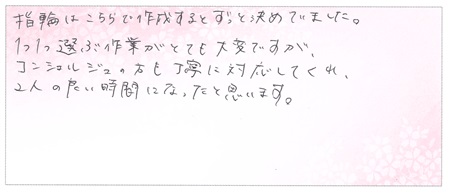 指輪はこちらで作成するとずっと決めていました。
1つ1つ選ぶ作業がとても大変ですが、
コンシェルジュの方も丁寧に対応してくれ、
2人の良い時間になったと思います。